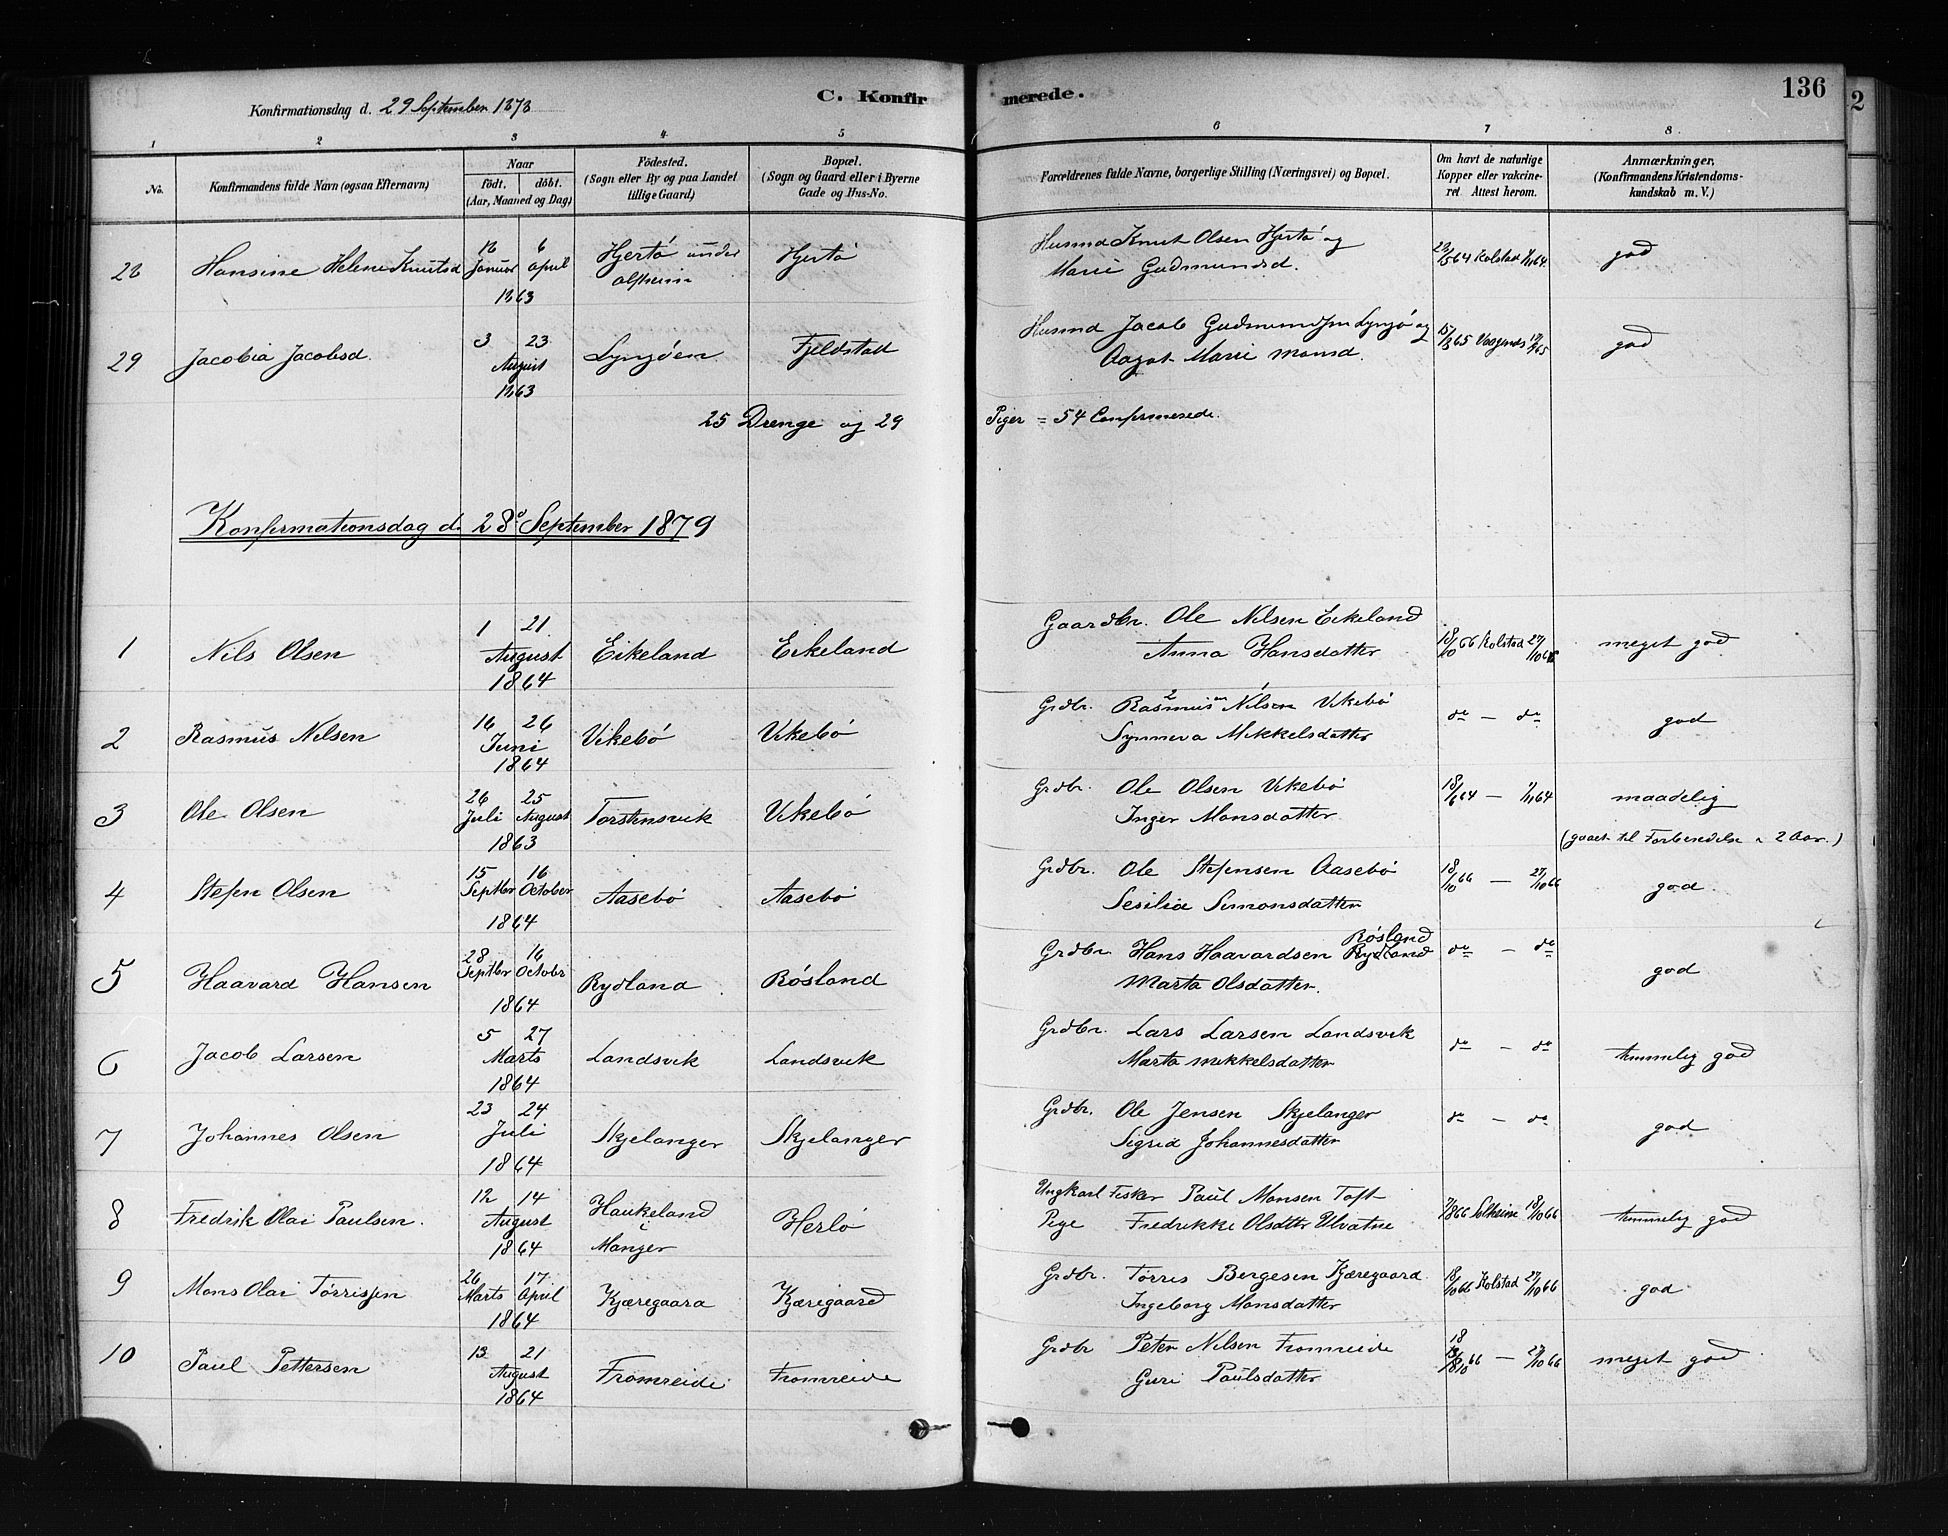 136
2
Konfirmationsdag d. 29 September 1878
C. Konfirmerede.
1 2 3 4 5 6 7 8
No.
Konfirmandens fulde Navn (ogsaa Efternavn)
Naar
födt. döbt.
(Aar, Maaned og Dag)
Födested.
(Sogn eller By og paa Landet
tillige Gaard)
Bopæl.
(Sogn og Gaard eller i Byerne
Gade og Hus-No.
Forældrenes fulde Navne, borgerlige Stilling (Næringsvei) og Bopæl.
Om havt de naturlige
Kopper eller vakcine-
ret Attest herom.
Anmærkninger,
(Konfirmandens Kristendoms-
kundskab m. V.)
28 Hansine Helene Knutsd 6 Januar April 1863 Hjertø under Hjertø
Husmd Knut Olsen Hjertø og
Marie Gudmundsd. Kolstad god
29 Jacobia Jacobsd. 3 23 August 1863 Lyngöen Fjeldstad
Husmd Jacob Gudmundsen Lyngö og
Aagot Marie Monsd. god
25 Drenge og 29 Piger = 54 Confirmerede.
Konfirmationsdag d. 28de September 1879
1 Nils Olsen 1 21 August 1864 Eikeland Eikeland
Gaardbr. Ole Nilsen Eikeland
Anna Hansdatter 18/10 66 Kolstad 27/10 66 meget god
2 Rasmus Nilsen 16 26 Juni 1864 Vikebö Vikebö
Grdbr. Rasmus Nilsen Vikebö
Synneva Mikkelsdatter do — do god
3 Ole Olsen 26 Juli 25 August 1863 Torstensvik Vikebö
Grdbr. Ole Olsen Vikebö
Inger Monsdatter 18/6 64 — 1/11 64 maadelig
(gaaet til Forberedelse i 2 Aar.)
4 Stefen Olsen 15 Septbr 16 October 1864 Aasebö Aasebö
Grdbr. Ole Stefensen Aasebö
Sesilia Simonsdatter 18/10 66 — 27/10 66 god
5 Haavard Hansen 28 Septbr 16 October 1864 Rydland Rösland
Grdbr. Hans Haavardsen Rydland Rösland
Marta Olsdatter. do — do god
6 Jacob Larsen 5 27 Marts 1864 Landsvik Landsvik
Grdbr. Lars Larsen Landsvik
Marta Mikkelsdatter do — do temmelig god
7 Johannes Olsen 23 24 Juli 1864 Skjelanger Skjelanger
Grdbr. Ole Jensen Skjelanger
Sigrid Johannesdatter do — do god
8 Fredrik Olai Paulsen. 12 14 August 1864 Haukeland i Manger Herlö
Ungkarl Fisker Paul Monsen Toft
Pige Fredrikke Olsdtr Ulvatne 18/10 66 temmelig god
9 Mons Olai Törrissen 26 Marts 17 April 1864 Kjæregaard Kjæregaard
Grdbr. Törris Bergesen Kjæregaard
Ingeborg Monsdatter 18/10 66 Kolstad 27/10 66 god
10 Paul Pettersen 13 21 August 1864 Fromreide Fromreide
Grdbr Peter Nilsen Fromreide
Guri Paulsdatter 18/10 66 — 27/10 66 meget god